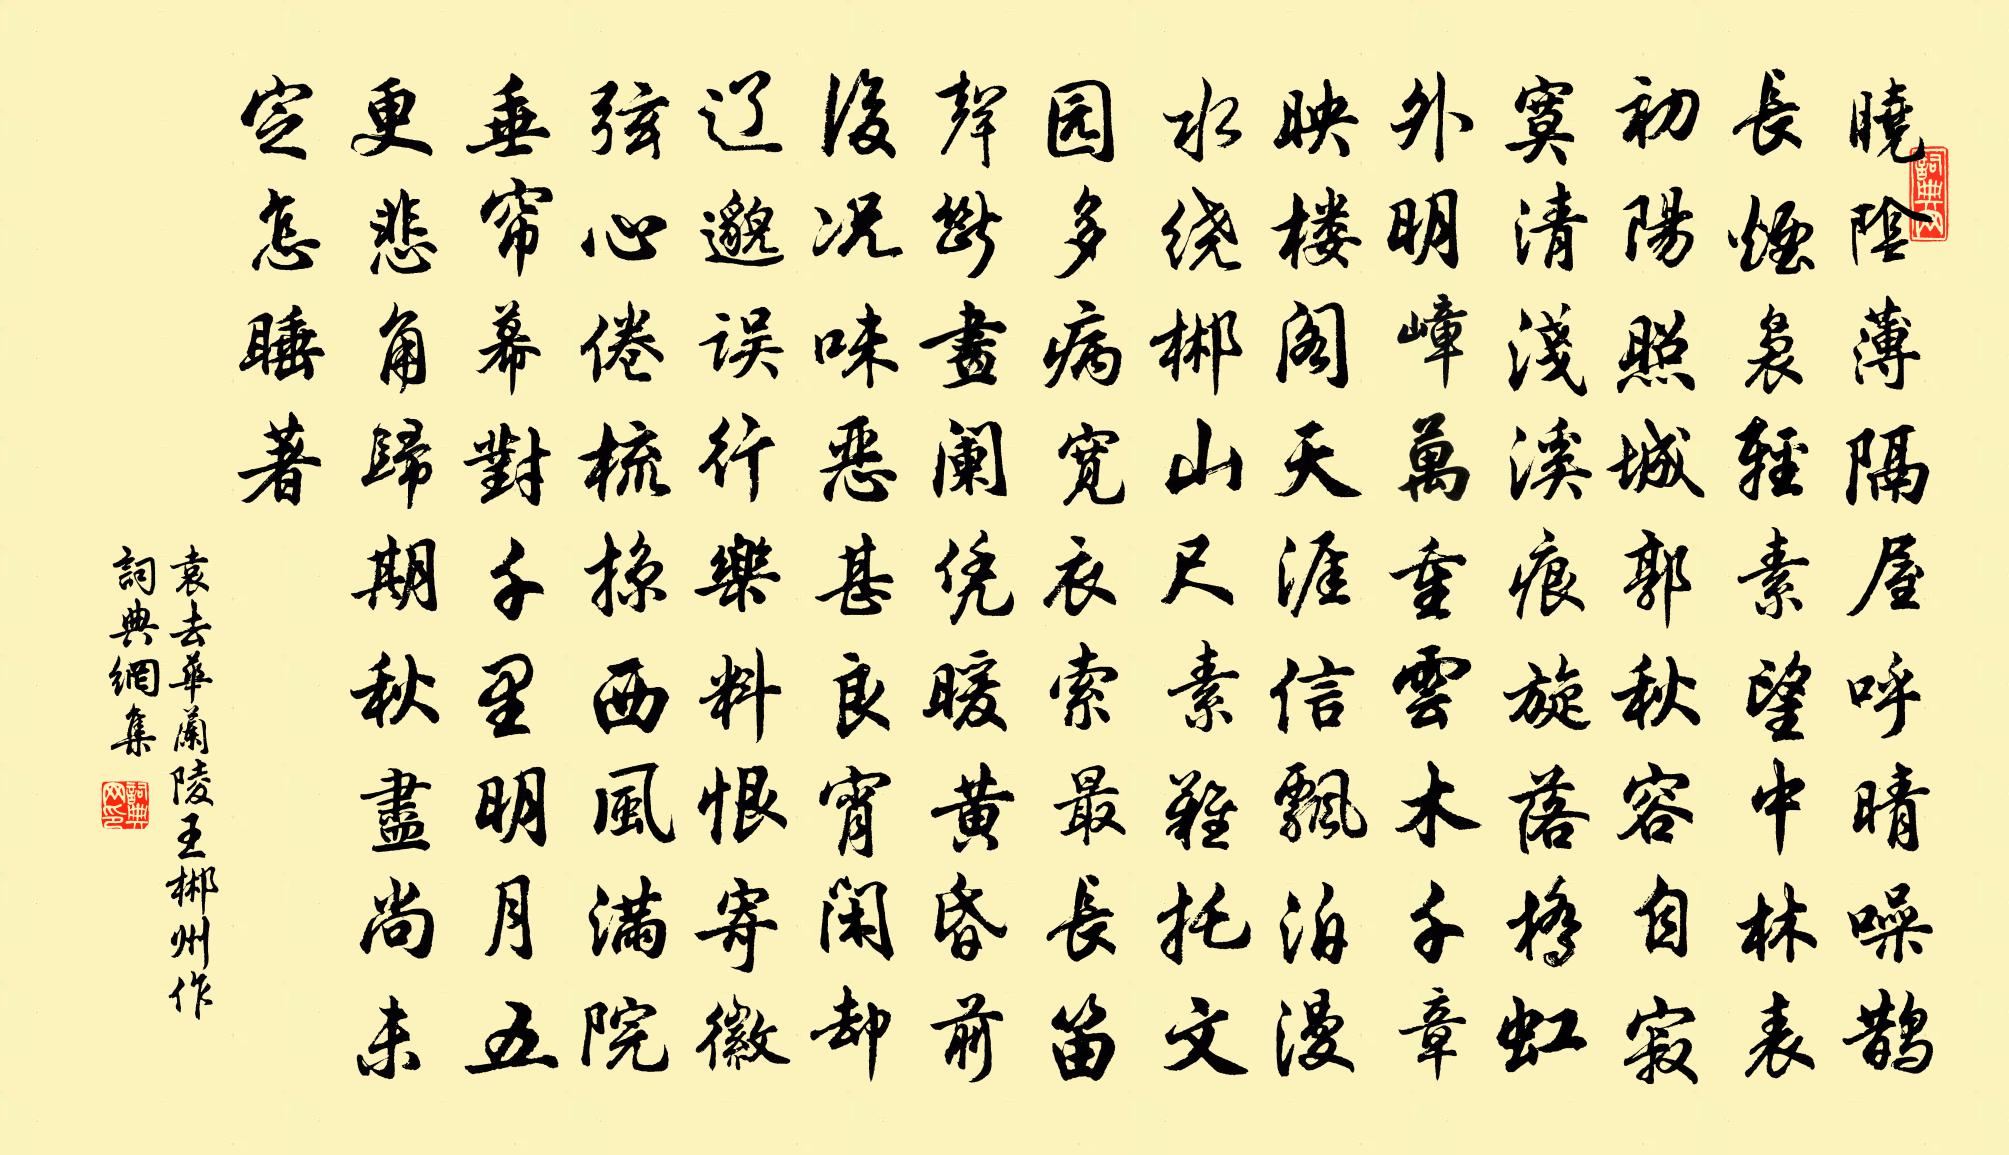 曉陰薄隔屋呼晴噪鹊
長煙裊輕素望中林表
初陽照城郭秋容自寂
寞清淺溪痕旋落橋虹
外明嶂萬重雲木千章
映楼阁天涯信飄泊漫
水绕郴山尺素難托文
园多病宽衣索最長笛
聲斷畫阑凭暖黄昏前
後况味惡甚良宵閑却
辽邈误行樂料恨寄徽
弦心倦梳掠西風满院
垂帘幕對千里明月五
更悲角歸期秋盡尚未
定怎睡著
袁去華蘭陵王郴州作
詞典網集
詞典网
詞典网印